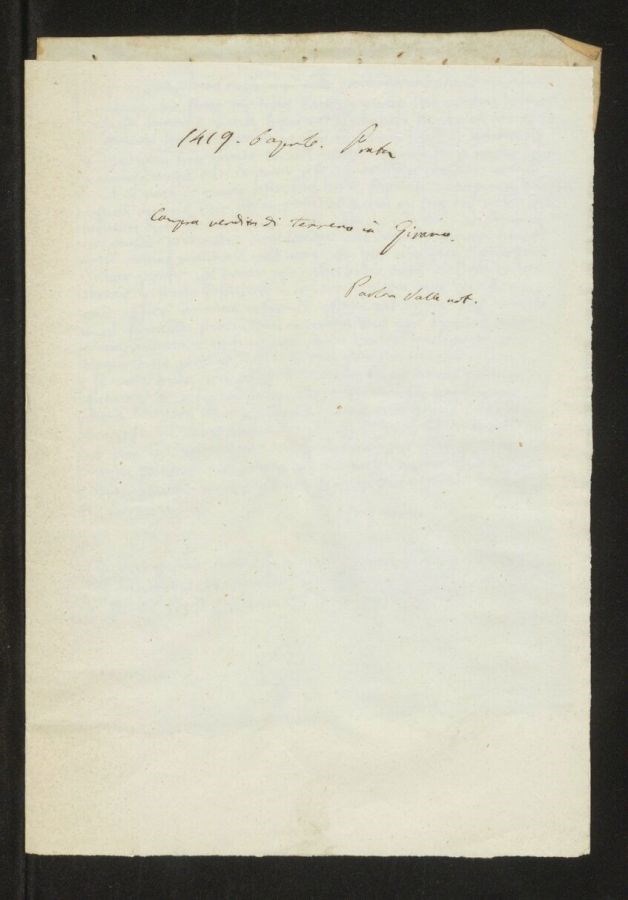 1419. 6 aprile. Prata
Compra vendita di terreno in Givano.
Paolo Valle not.